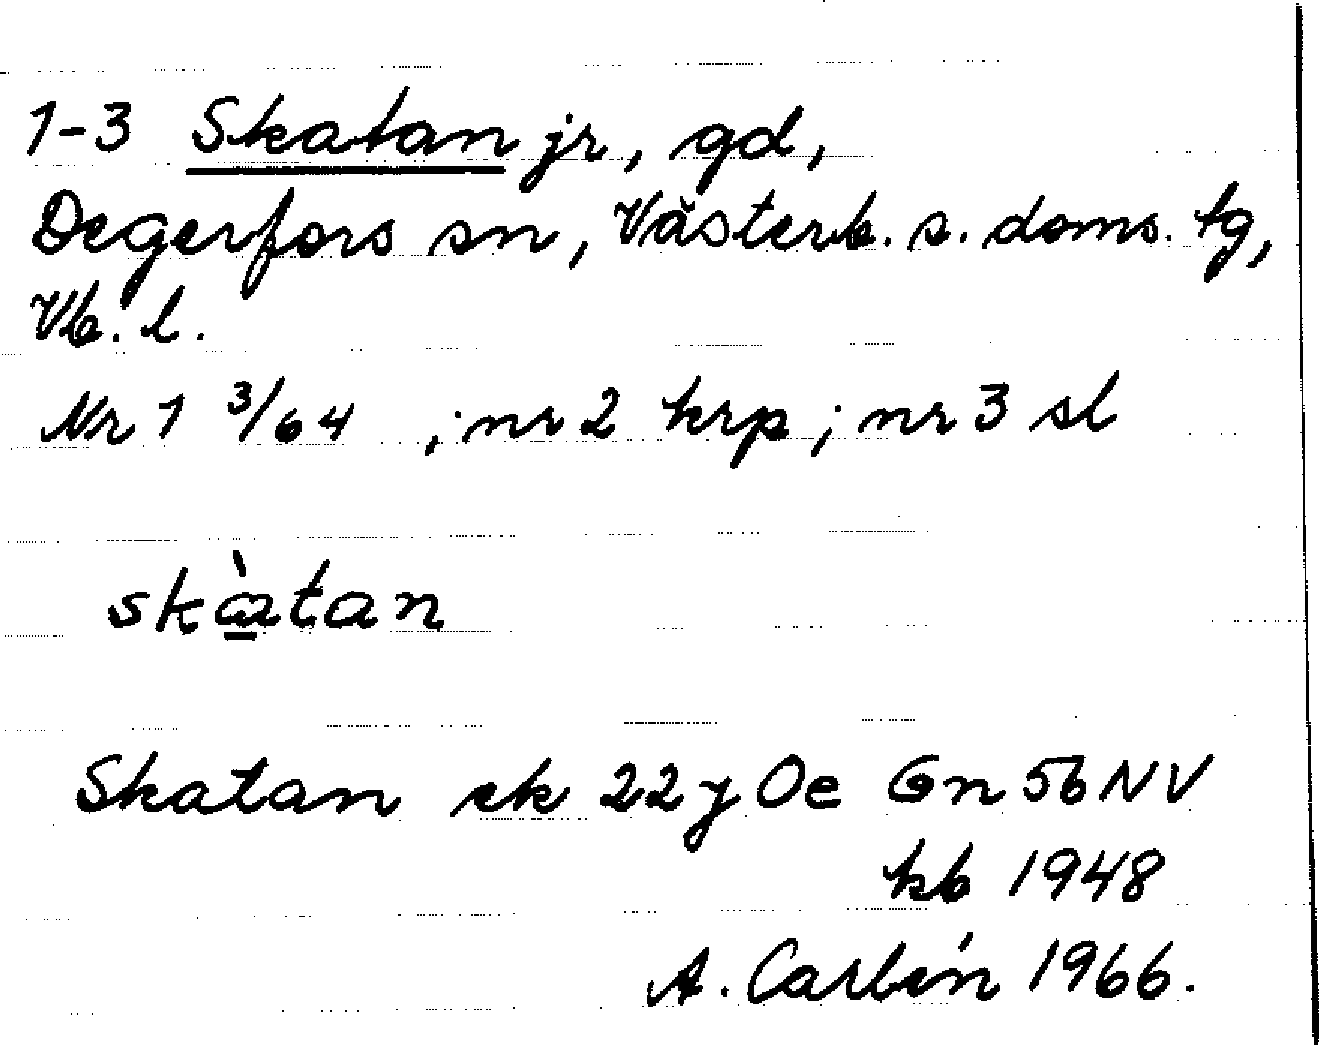 1-3 Skatan jr, gd,
Degerfors sn, Västerb. s. doms. tg,
Vb. l.
Nr 1 3/64 ; nr 2 krp; nr 3 sl
skàtan
Skatan ek 22y Oe Gn 56 NV
kb 1948
A. Carlén 1966.